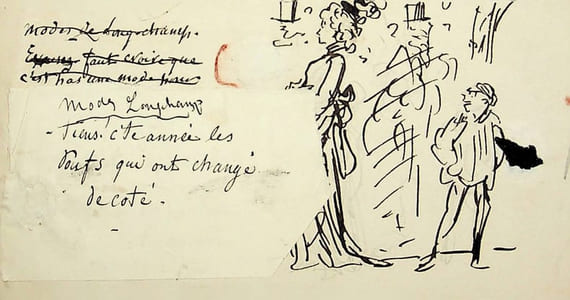 modes de Longchamp.
faut croire que
c'est pas une mode pour
Modes Longchamp
- Tiens! c'te année les
Poufs qui ont changé
de coté.